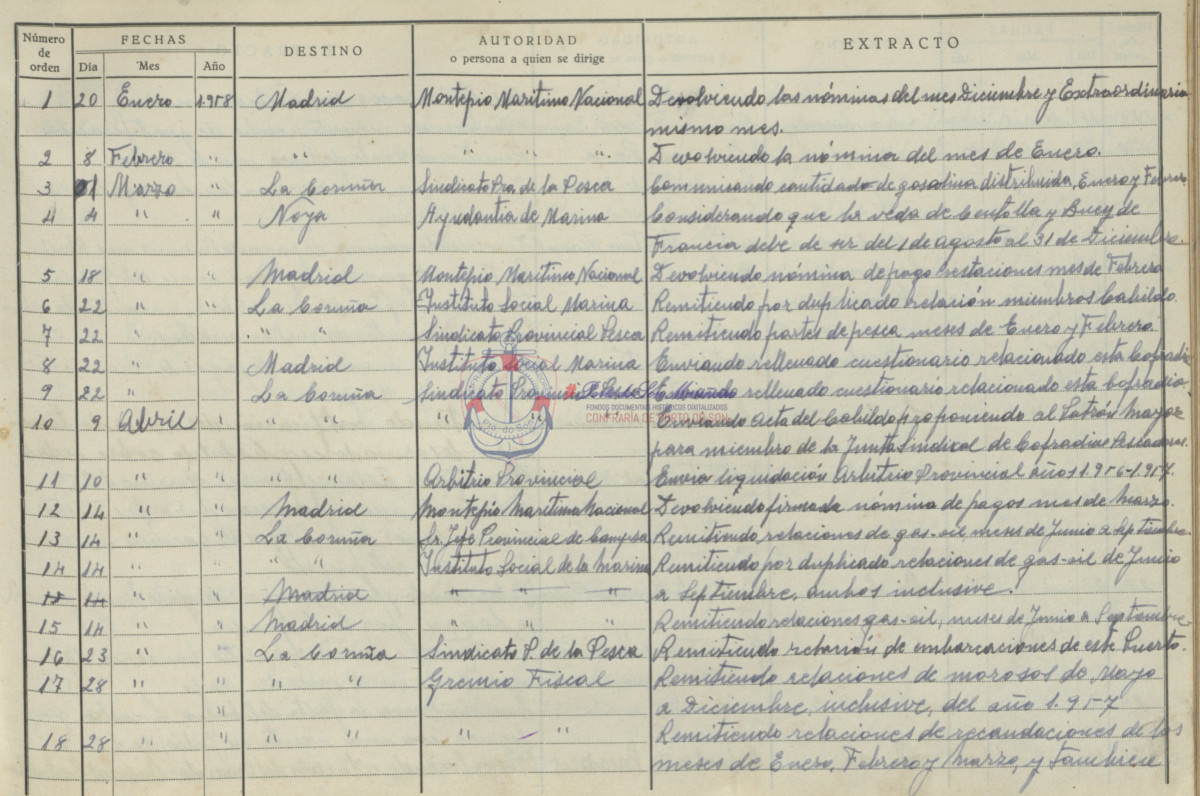 Número de orden FECHAS DESTINO AUTORIDAD o persona a quien se dirige EXTRACTO
Día Mes Año
1 20 Enero 1.958 Madrid Montepio Maritimo Nacional Devolviendo las nóminas del mes Diciembre y Extraordinaria
mismo mes.
2 8 Febrero " " " " Devolviendo la nómina del mes de Enero.
3 1 Marzo " La Coruña Sindicato Pra. de la Pesca Comunicando cantidad de gasolina distribuida, Enero y Febrero
4 4 " " Noya Ayudantia de Marina Considerando que la veda de Centolla y Buey de
Francia debe de ser del 1 de agosto al 31 de Diciembre.
5 18 " " Madrid Montepio Maritimo Nacional Devolviendo nómina de pago prestaciones mes de Febrero
6 22 " " La Coruña Instituto Social Marina Remitiendo por duplicado relación miembros Cabildo.
7 22 " " " Sindicato Provincial Pesca Remitiendo partes de pesca meses de Enero y Febrero.
8 22 " Madrid Instituto Social Marina Enviando rellenado cuestionario relacionado esta Cofradia
9 22 " La Coruña Sindicato rellenado cuestionario relacionado esta Cofradia
FONDOS DOCUMENTAIS HISTÓRICOS DIGITALIZADOS
CONFRARÍA DE PORTO DO SON
10 9 Abril " " " " " Enviando acta del Cabildo proponiendo al Patrón Mayor
para miembro de la Junta Sindical de Cofradias Pescadores.
11 10 " " " " Arbitrio Provincial Envia liquidación Arbitrio Provincial años 1.956-1.957.
12 14 " " Madrid Montepio Maritimo Nacional Devolviendo firmada nómina de pagos mes de Marzo.
13 14 " " La Coruña Sr. Jefe Provincial de Campsa Remitiendo relaciones de gas-oil meses de Junio a Septiembre
14 14 " " " " Instituto Social de la Marina Remitiendo por duplicado relaciones de gas-oil de Junio
14 " " Madrid " " " a Septiembre, ambos inclusive.
15 14 " " Madrid " " " Remitiendo relaciones gas-oil, meses de Junio a Septiembre
16 23 " " La Coruña Sindicato P. de la Pesca Remitiendo relación de embarcaciones de este Puerto.
17 28 " " " " Gremio Fiscal Remitiendo relaciones de morosos de Mayo
" a Diciembre, inclusive, del año 1.957
18 28 " " " " " " Remitiendo relaciones de recaudaciones de los
meses de Enero, Febrero y Marzo, y tambien